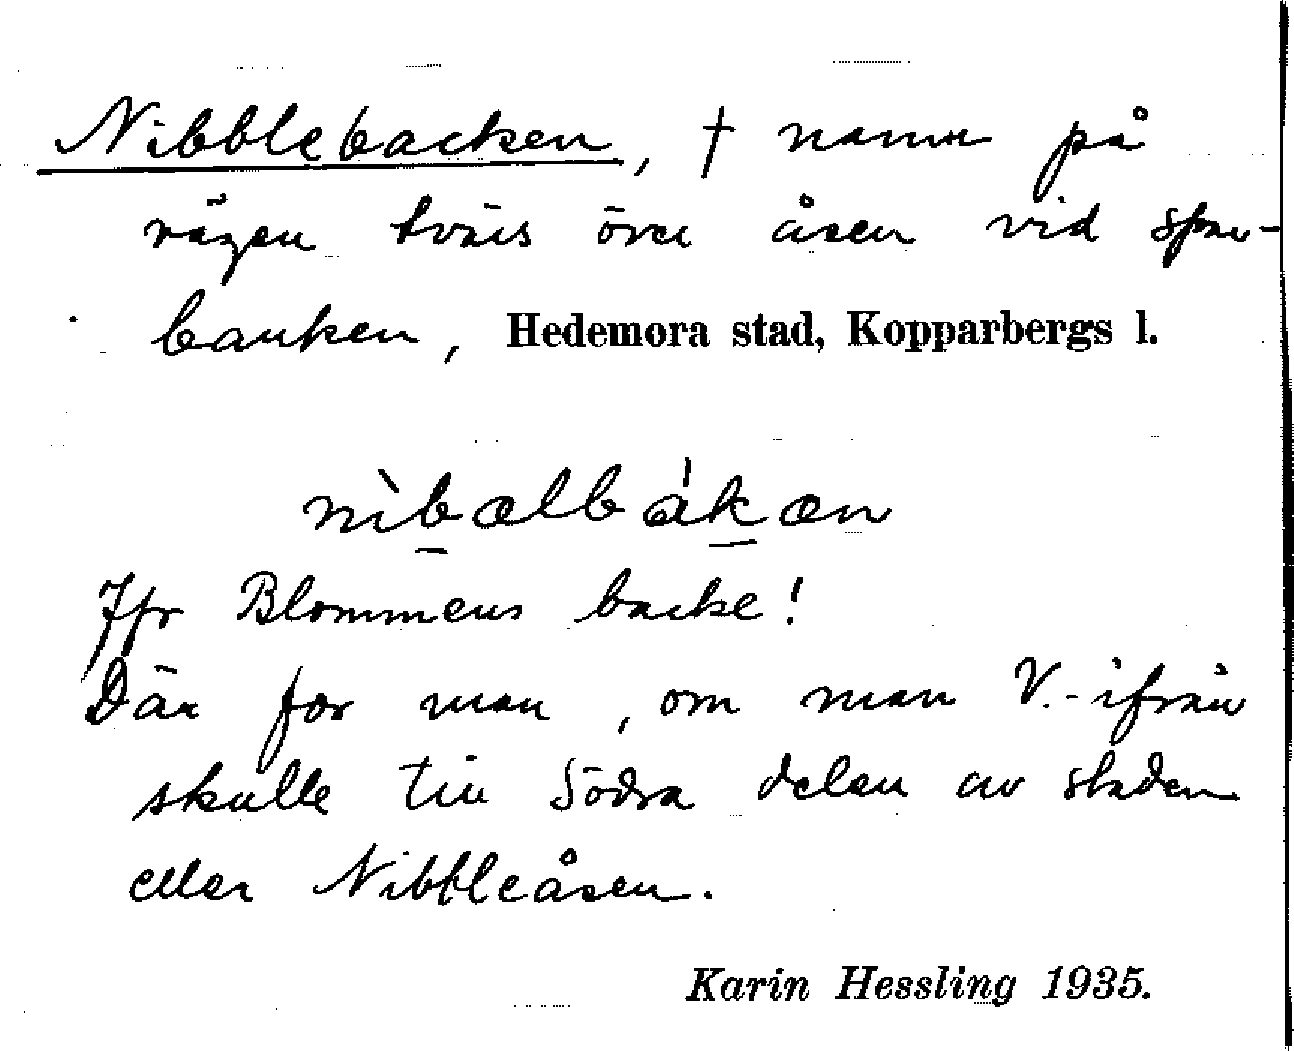 Nibblebacken, † namn på
vägen tvärs över åsen vid spar-
banken, Hedemora stad, Kopparbergs l.
nìbælbákæn
Jfr Blommens backe!
Där for man, om man V.-ifrån
skulle till Södra delen av staden
eller Nibbleåsen.
Karin Hessling 1935.